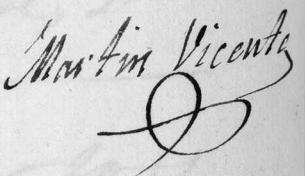 Martin Vicente